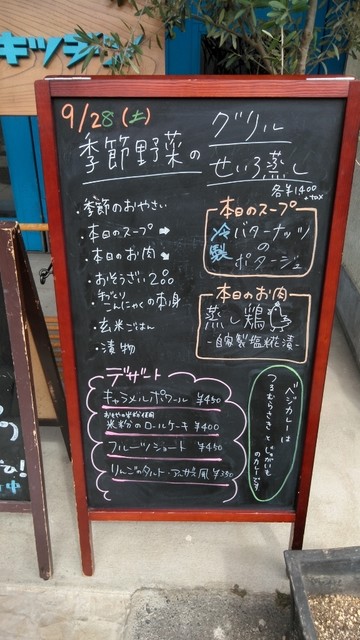 キッジン
9/28(土)
季節野菜の
グリル
せいろ蒸し
各¥1400
+tax
・季節のおやさい
・本日のスープ➡
・本日のお肉
・おそうざい2品
・手づくり
こんにゃくの刺身
・玄米ごはん
・漬物
本日のスープ
冷製
バターナッツ
の
ポタージュ
本日のお肉
蒸し鶏
-自家製塩糀漬-
デザート
キャラメルポワール ¥450
米粉のロールケーキ ¥400
フルーツショート ¥450
りんごのタルト・アルザス風 ¥380
ベジカレーは
つるむらさきとじゃがいも
のカレーです